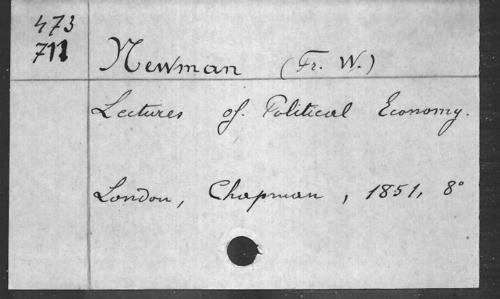 473
711
Newman (Fr. W.)
Lectures of Political Economy.
London, Chapman, 1851, 8°